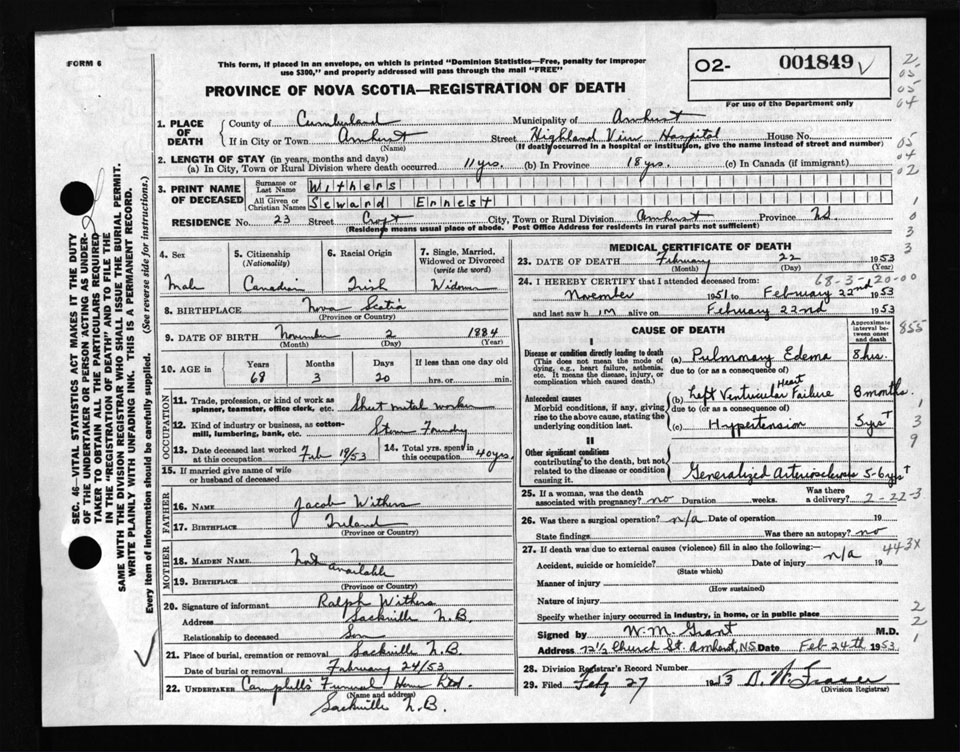 FORM 6
This form, if placed in an envelope, on which is printed "Dominion Statistics—Free, penalty for improper
use $300," and properly addressed will pass through the mail "FREE"
PROVINCE OF NOVA SCOTIA—REGISTRATION OF DEATH
02- 001849
For use of the Department only
2
05
05
04
05
04
02
1
0
3
3
SEC. 46—VITAL STATISTICS ACT MAKES IT THE DUTY
OF THE UNDERTAKER OR PERSON ACTING AS UNDER-
TAKER TO OBTAIN ALL THE PARTICULARS REQUIRED
IN THE "REGISTRATION OF DEATH" AND TO FILE THE
SAME WITH THE DIVISION REGISTRAR WHO SHALL ISSUE THE BURIAL PERMIT.
WRITE PLAINLY WITH UNFADING INK. THIS IS A PERMANENT RECORD.
Every item of information should be carefully supplied. (See reverse side for instructions.)
1. PLACE OF DEATH
County of Cumberland Municipality of Amherst
If in City or Town Amherst Street Highland View Hospital House No.
(Name) (If death occurred in a hospital or institution, give the name instead of street and number)
2. LENGTH OF STAY (in years, months and days)
(a) In City, Town or Rural Division where death occurred 11 yrs. (b) In Province 18 yrs. (c) In Canada (if immigrant)
3. PRINT NAME OF DECEASED
Surname or Last Name Withers
All Given or Christian Names Seward Ernest
RESIDENCE No. 23 Street Croft City, Town or Rural Division Amherst Province NS
(Residence means usual place of abode. Post Office Address for residents in rural parts not sufficient)
4. Sex Male
5. Citizenship (Nationality) Canadian
6. Racial Origin Irish
7. Single, Married, Widowed or Divorced (write the word) Widower
8. BIRTHPLACE Nova Scotia
(Province or Country)
9. DATE OF BIRTH November 2 1884
(Month) (Day) (Year)
10. AGE in Years Months Days If less than one day old
68 3 20 hrs. or min.
OCCUPATION
11. Trade, profession, or kind of work as
spinner, teamster, office clerk, etc. Sheet metal worker
12. Kind of industry or business, as cotton-
mill, lumbering, bank, etc. Foundry
13. Date deceased last worked at this occupation Feb 19/53
14. Total yrs. spent in this occupation 40 yrs.
15. If married give name of wife
or husband of deceased
FATHER
16. Name Jacob Withers
17. Birthplace Ireland
(Province or Country)
MOTHER
18. MAIDEN NAME Not available
19. BIRTHPLACE
(Province or Country)
20. Signature of informant Ralph Withers
Address Sackville N.B.
Relationship to deceased Son
21. Place of burial, cremation or removal Sackville N.B.
Date of burial or removal February 24/53
22. UNDERTAKER Campbell's Funeral Home Ltd.
(Name and address)
Sackville N.B.
MEDICAL CERTIFICATE OF DEATH
23. DATE OF DEATH February 22 1953
(Month) (Day) (Year)
68-3-20-00
24. I HEREBY CERTIFY that I attended deceased from:
November 1951 to February 22nd 1953
and last saw him alive on February 22nd 1953
CAUSE OF DEATH
Approximate interval between onset and death
855
I
Disease or condition directly leading to death
(This does not mean the mode of
dying, e.g., heart failure, asthenia,
etc. It means the disease, injury, or
complication which caused death.)
(a) Pulmonary Edema 8 hrs.
due to (or as a consequence of)
Antecedent causes
Morbid conditions, if any, giving
rise to the above cause, stating the
underlying condition last.
(b) Left Ventricular Heart Failure 8 months.
due to (or as a consequence of)
(c) Hypertension 5 yrs +
1
3
9
II
Other significant conditions
contributing to the death, but not
related to the disease or condition
causing it.
Generalized Arteriosclerosis 5-6 yrs +
25. If a woman, was the death
associated with pregnancy? no Duration weeks. Was there a delivery?
2-22-3
26. Was there a surgical operation? n/a Date of operation 19
State findings Was there an autopsy? no
27. If death was due to external causes (violence) fill in also the following:—
443X
Accident, suicide or homicide? n/a Date of injury 19
(State which)
Manner of injury
(How sustained)
Nature of injury
Specify whether injury occurred in industry, in home, or in public place
2
2
1
Signed by W. M. Grant M.D.
Address 12½ Church St. Amherst, N.S. Date Feb 24th 1953
28. Division Registrar's Record Number
29. Filed Feby 27 1953 Fraser
(Division Registrar)